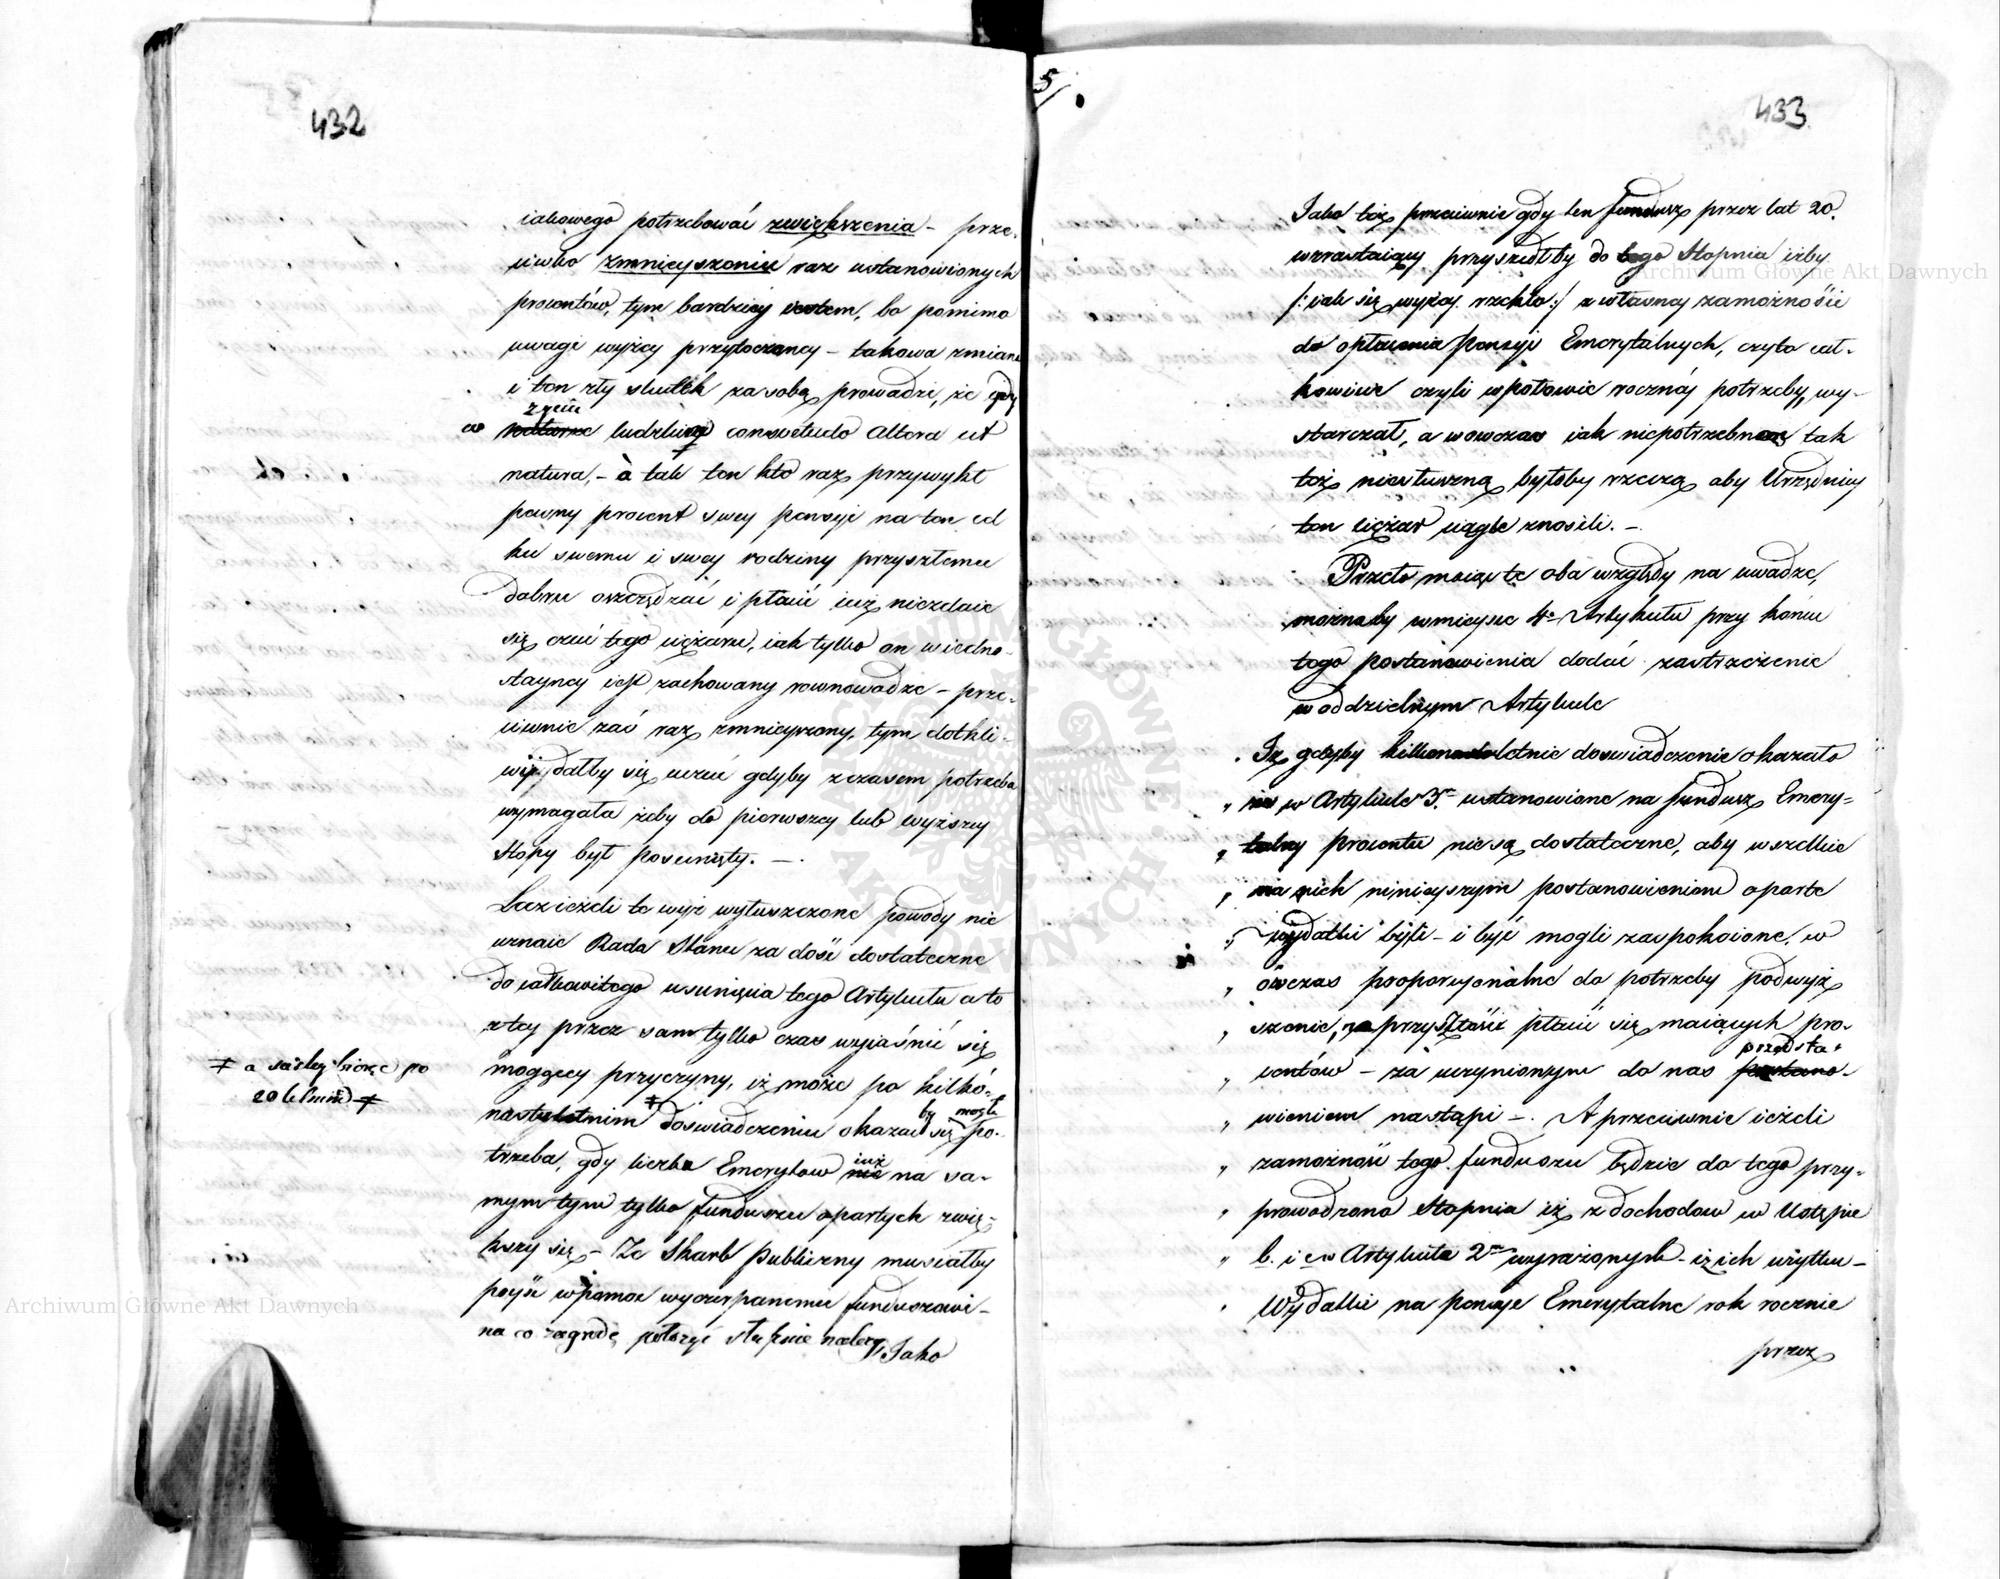 432
iakowego potrzebować zwiększenia – prze-
ciwko zmnieyszeniu raz ustanowionych
procentów, tym bardziey iestem, bo pomimo
uwagi wyżey przytoczoney – takowa zmiana
i ten zły skutek za sobą prowadzi, że gdy
życiu
w naturze ludzkiey consvetudo altera est
natura, – à tak ten kto raz przywykł
pewny procent swey pensyi na ten cel
ku swemu i swey rodziny przyszłemu
dobru oszczędzać i płacić iuż niezdaie
się czuć tego ciężaru, iak tylko on w iedno-
stayney iest zachowany rownowadze – prze-
ciwnie zaś raz zmnieyszony, tym dotkli-
wiey dałby się uczuć gdyby z czasem potrzeba
wymagała żeby do pierwszey lub wyższey
stopy był posunięty. –.
Lecz ieżeli te wyż wyłuszczone powody nie
uznaie Rada Stanu za dość dostateczne
do całkowitego usunięcia tego Artykułu a to
z tey przez sam tylko czas wyiaśnić się
mogącey przyczyny, iż może po kilko-
nastoletnim doświadczeniu okazać by się mogła po-
≠ a sciśley biorąc po
20 letnim ≠
trzeba, gdy liczba Emerytow iuż nie na sa-
mym tym tylko funduszu opartych zwię-
kszy się – Że Skarb Publiczny musiałby
poyść w pomoc wyczerpanemu funduszowi –
na co zagrodę położyć słusznie należy. Jako
5/
433
Jako też przeciwnie gdy ten fundusz przez lat 20.
wzrastaiący przyszedłby do tego Stopnia iżby
/: iak się wyżey rzekło :/ z własney zamożności
do opłacenia Pensyi Emerytalnych, czyto cał-
kowicie czyli w połowie roczney potrzeby, wy-
starczał, a wowczas iak niepotrzebną tak
też niesłuszną byłoby rzeczą aby Urzędnicy
ten ciężar ciągle znosili. –
Przeto maiąc te oba względy na uwadze,
możnaby w mieysce 4o Artykułu przy końcu
tego postanowienia dodać zastrzeżenie
w oddzielnym Artykule
Iż gdyby kilkonastoletnie doświadczenie okazało
„ że w Artykule 3m ustanowione na fundusz Emery-
„ talny procentu nie są dostateczne, aby wszelkie
„ na nich ninieyszym postanowieniem oparte
„ wydatki były – i być mogli zaspokoione, w
„ ówczas proporcyonalne do potrzeby podwyż
„ szenie, na przyszłość płacić się maiących pro-
„ centów – za uczynionym do nas przedsta- postano-
„ wieniem nastąpi –. A przeciwnie ieżeli
„ zamożność tego funduszu będzie do tego przy-
„ prowadzona Stopnia iż z dochodow w Ustępie
„ b. i c. Artykułu 2m wyrażonych – i z ich użytku –
„ Wydatki na pensye Emerytalne rok rocznie
przez
Archiwum Główne Akt Dawnych
Archiwum Główne Akt Dawnych
ARCHIWUM GŁÓWNE AKT DAWNYCH